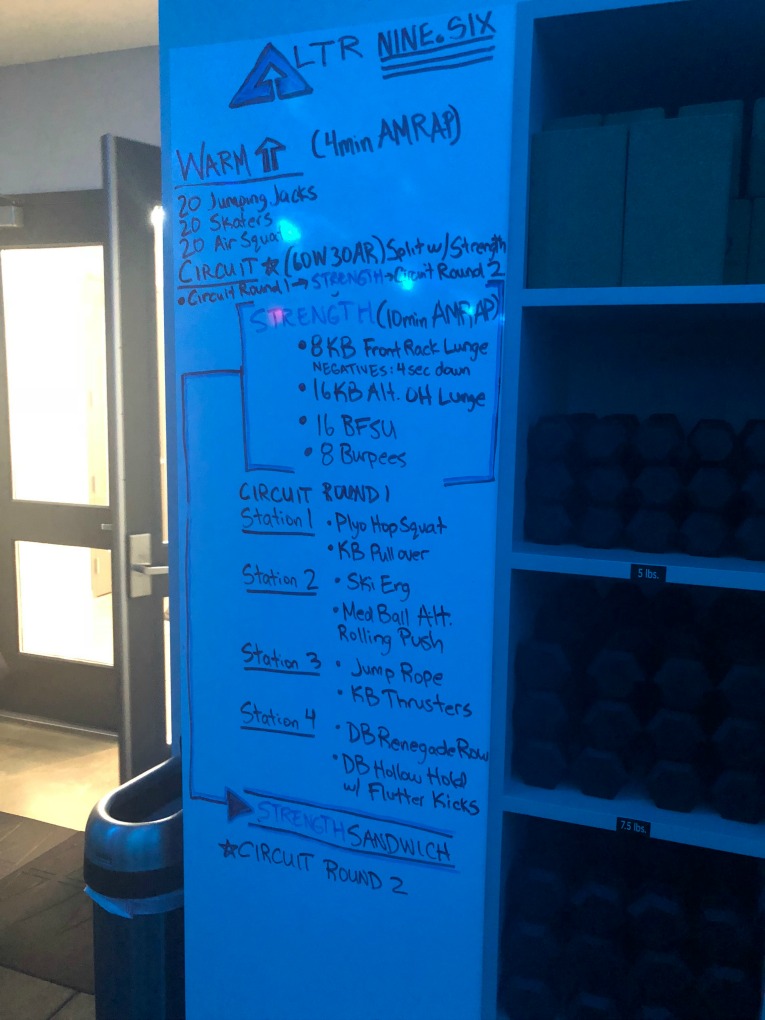 ALTR NINE.SIX
WARM ⇧ (4min AMRAP)
20 Jumping Jacks
20 Skaters
20 Air Squats
CIRCUIT ☆ (60W 30AR) Split w/ Strength
• Circuit Round 1 → STRENGTH → Circuit Round 2
STRENGTH (10min AMRAP)
• 8 KB Front Rack Lunge
NEGATIVES: 4 sec down
• 16 KB Alt. OH Lunge
• 16 BFSU
• 8 Burpees
CIRCUIT ROUND 1
Station 1 • Plyo Hop Squat
• KB Pull over
Station 2 • Ski Erg
• Med Ball Alt.
Rolling Push
Station 3 • Jump Rope
• KB Thrusters
Station 4 • DB Renegade Row
• DB Hollow Hold
w/ Flutter Kicks
STRENGTH SANDWICH
☆ CIRCUIT ROUND 2
5 lbs.
7.5 lbs.